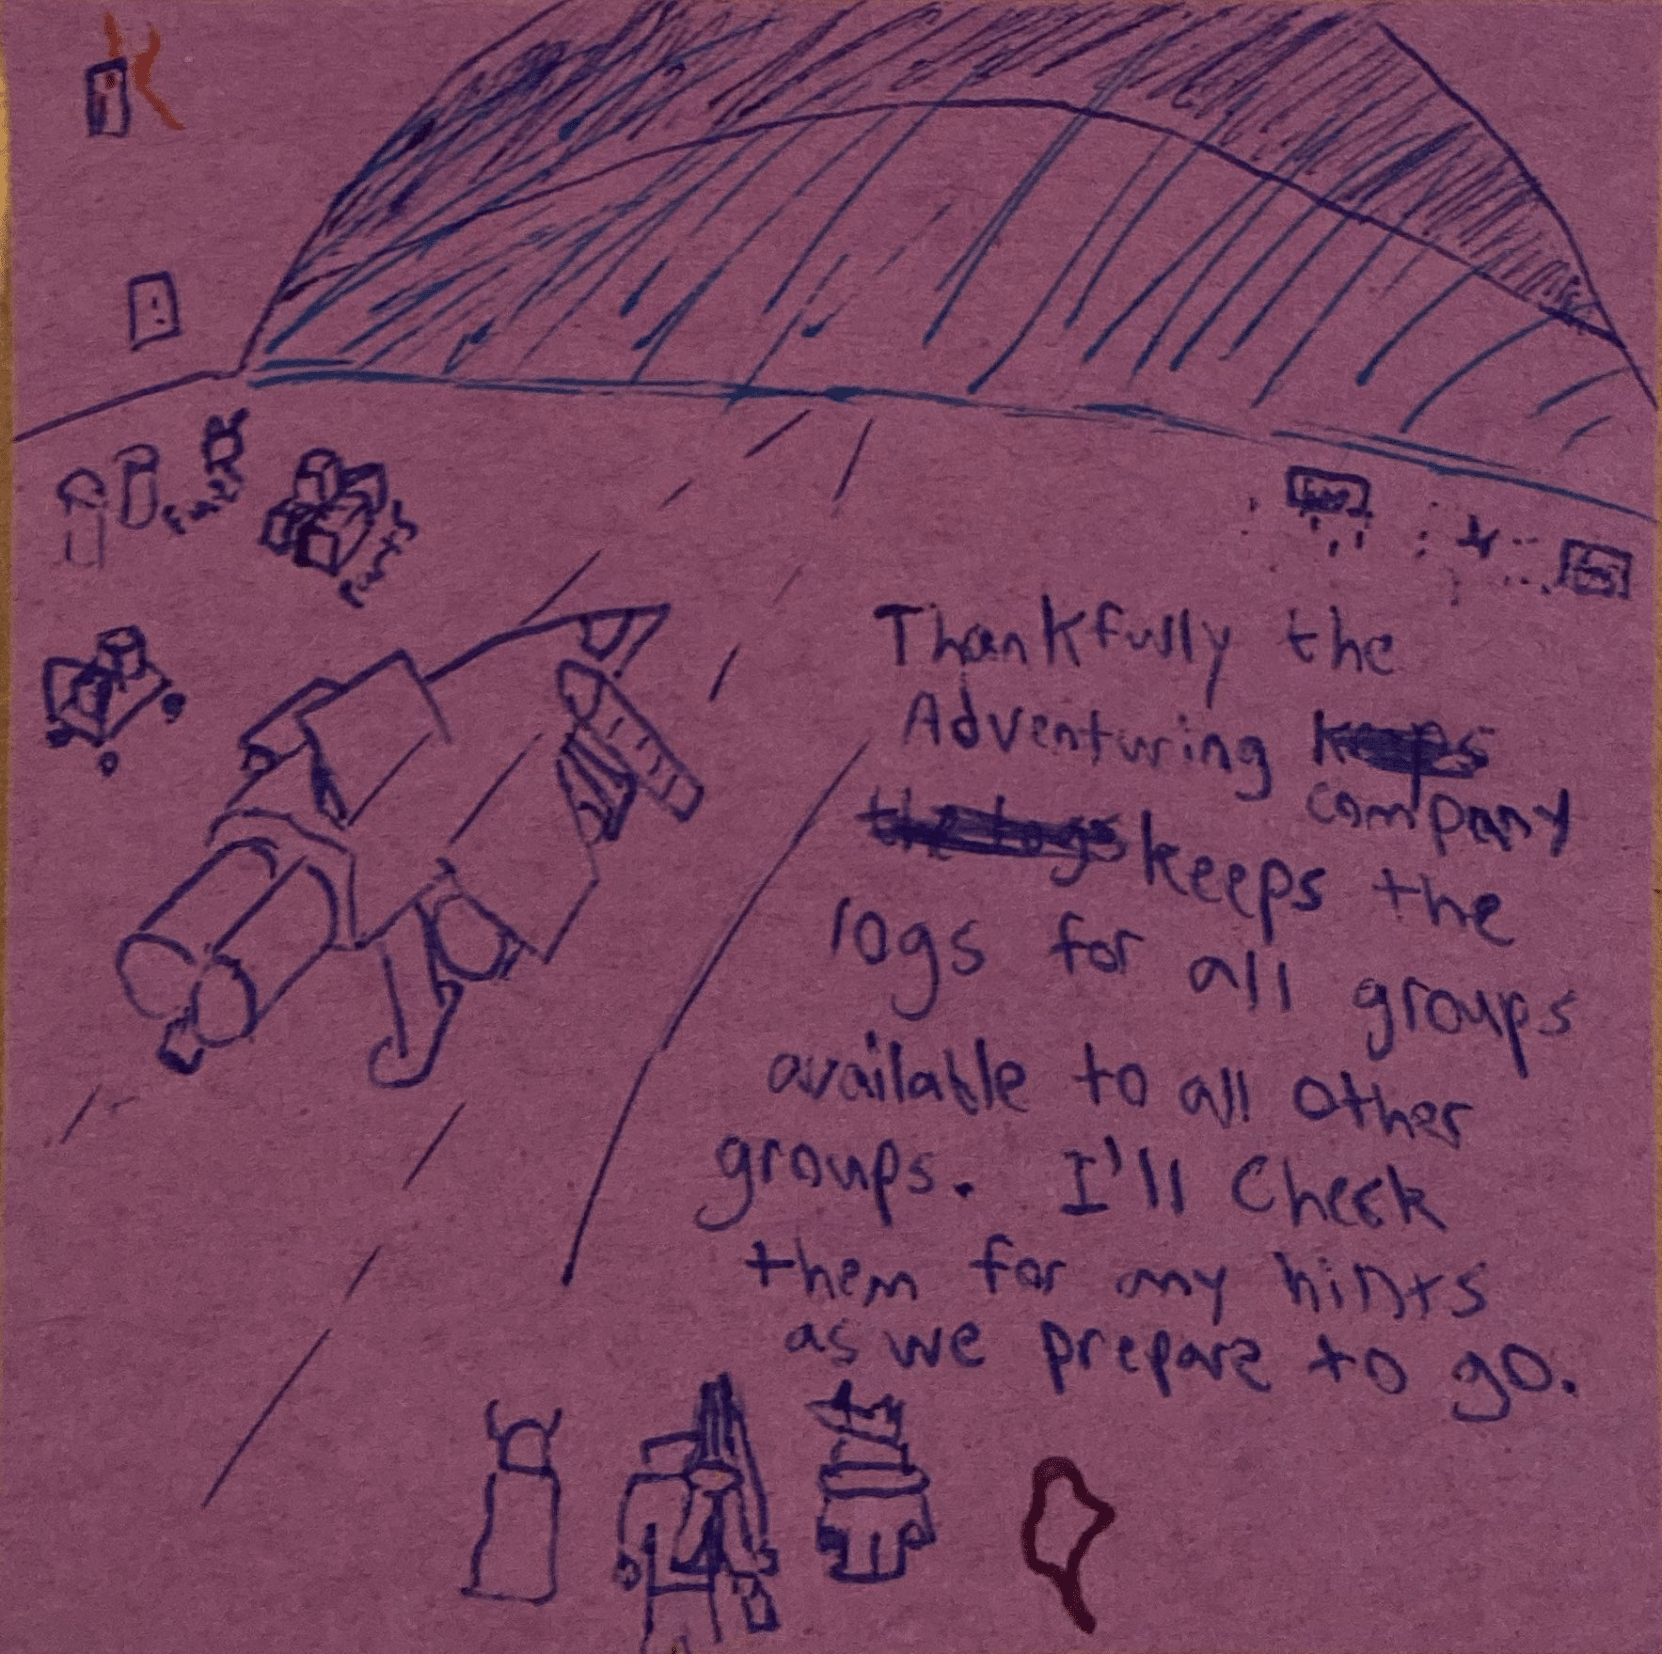 Thankfully the
Adventuring
company
keeps the
logs for all groups
available to all other
groups. I'll Check
them for any hints
as we prepare to go.